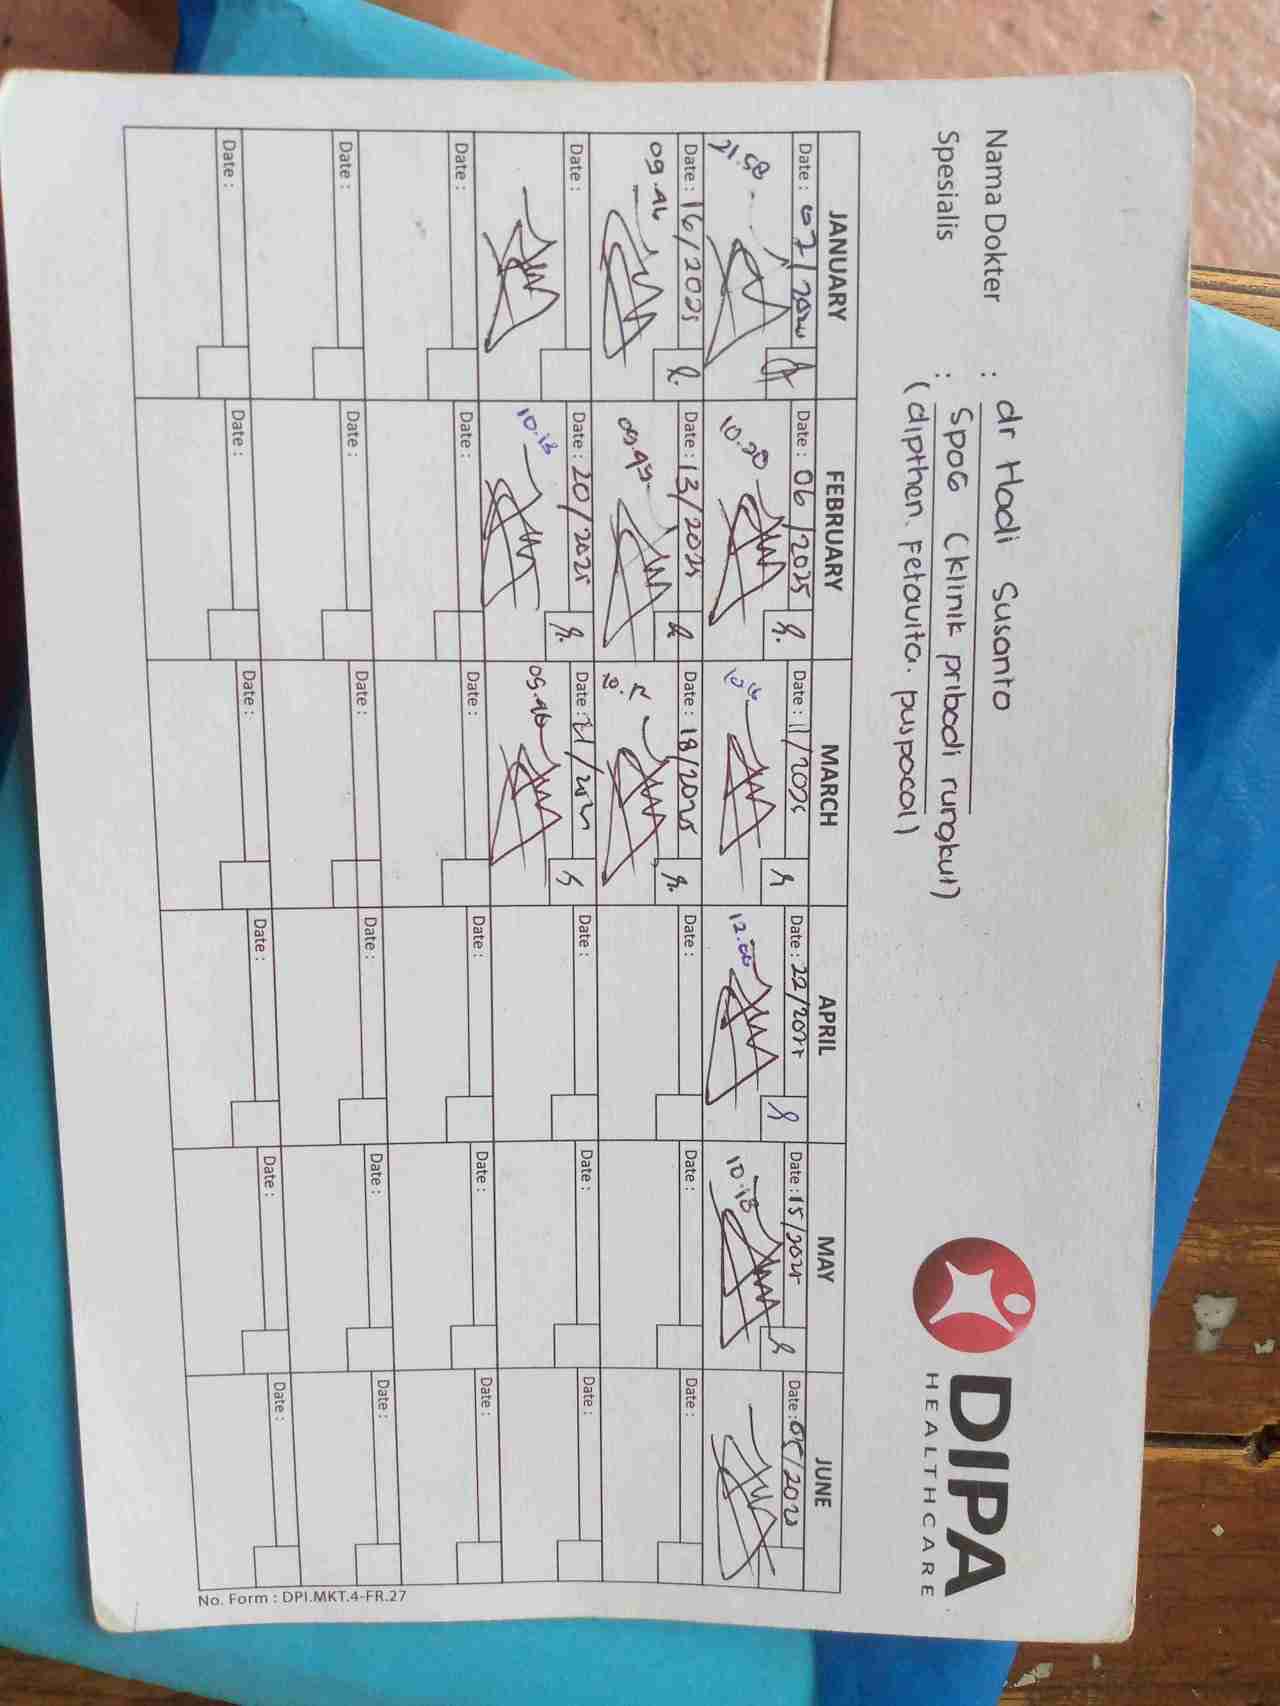 Nama Dokter : dr Hadi Susanto
Spesialis : SpOG (klinik pribadi rungkut)
(dipthen. Fetavita. puspacal)
DIPA
HEALTHCARE
JANUARY FEBRUARY MARCH APRIL MAY JUNE
Date : 07/ Date : 06/2025 Date : 11/2025 Date : 22/2025 Date : 15/2025 Date : 05/202
21.58 10.20 12.00 10.18
Date : 16/2025 Date : 13/2025 Date : 18/2025 Date : Date : Date :
09.46 09.49
Date : Date : 20/2025 Date : 21/ Date : Date : Date :
10.13 09.46
Date : Date : Date : Date : Date : Date :
Date : Date : Date : Date : Date : Date :
Date : Date : Date : Date : Date : Date :
No. Form : DPI.MKT.4-FR.27